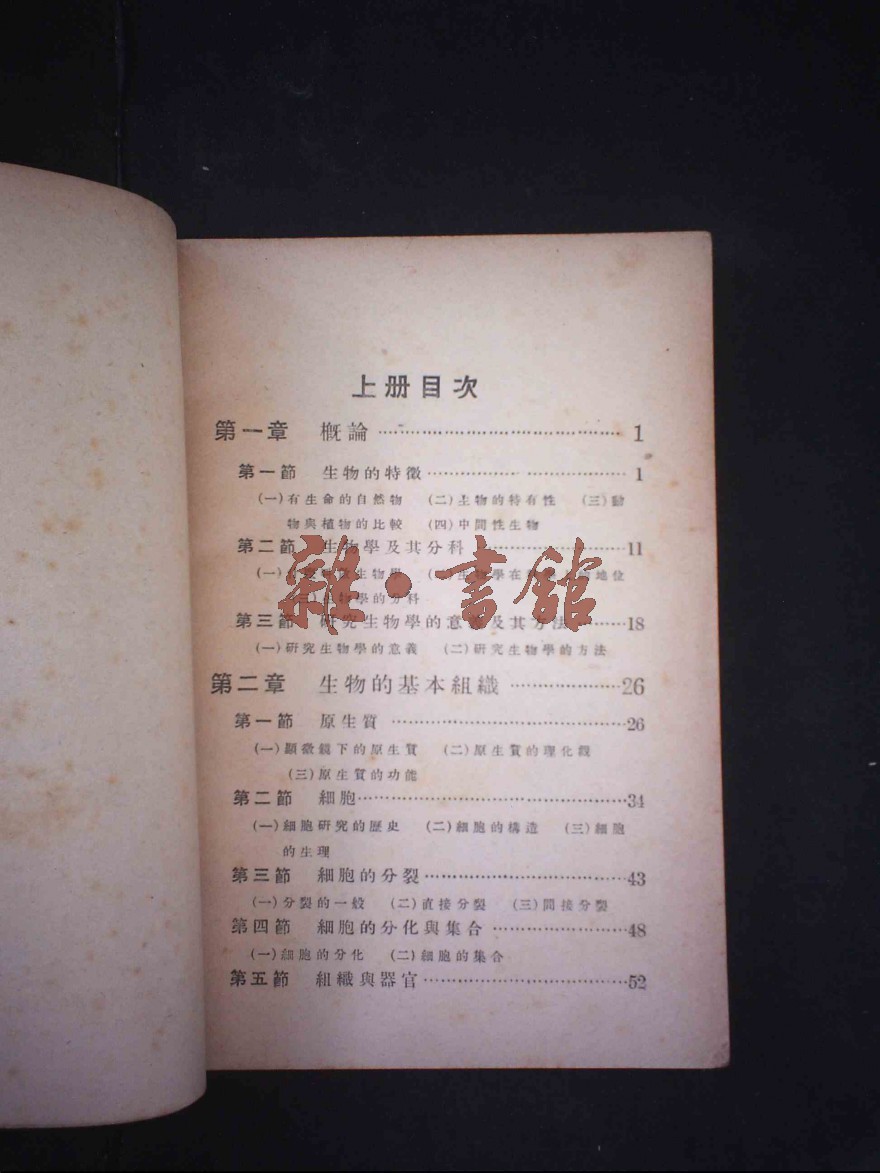 上册目次
第一章 概論 ……………………………… 1
第一節 生物的特徵 ……………………… 1
(一)有生命的自然物 (二)生物的特有性 (三)動
物與植物的比較 (四)中間性生物
第二節 生物學及其分科 ………………… 11
(一) 生物學 (二)生物學在 地位
(三)生物學的分科
第三節 研究生物學的意義及其方法 ……… 18
(一)研究生物學的意義 (二)研究生物學的方法
第二章 生物的基本組織 ………………… 26
第一節 原生質 …………………………… 26
(一)顯微鏡下的原生質 (二)原生質的理化觀
(三)原生質的功能
第二節 細胞 ……………………………… 34
(一)細胞研究的歷史 (二)細胞的構造 (三)細胞
的生理
第三節 細胞的分裂 ……………………… 43
(一)分裂的一般 (二)直接分裂 (三)間接分裂
第四節 細胞的分化與集合 ……………… 48
(一)細胞的分化 (二)細胞的集合
第五節 組織與器官 ……………………… 52
雜·書館